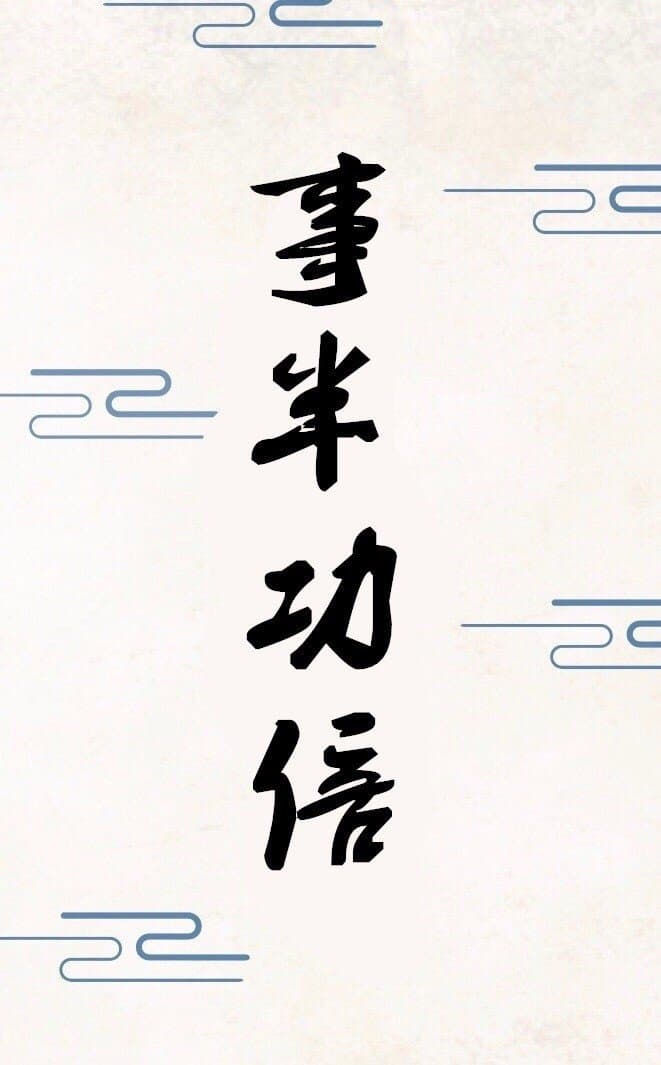 事半功倍